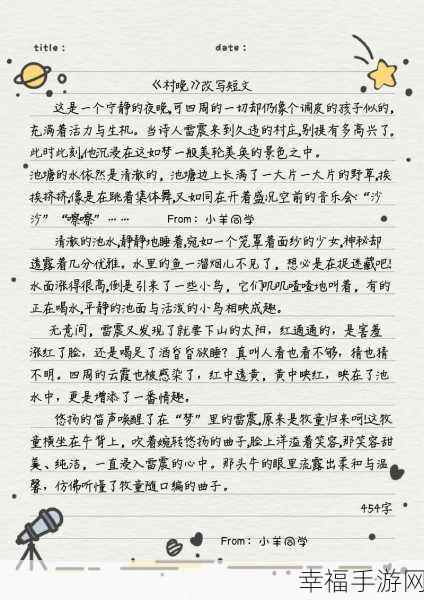 title： date：
《村晚》改写短文
这是一个宁静的夜晚,可四周的一切却仍像个调皮的孩子似的,
充满着活力与生机。当诗人雷震来到久违的村庄,别提有多高兴了。
此时此刻,他沉浸在这如梦一般美轮美奂的景色之中。
池塘的水依然是清澈的，池塘边上长满了一大片一大片的野草,挨
挨挤挤,像是在跳着集体舞,又如同在开着盛况空前的音乐会:“沙
沙”“嚓嚓”…… From：小羊同学
清澈的池水,静静地睡着,宛如一个笼罩着面纱的少女,神秘却
透露着几分优雅。水里的鱼一溜烟儿不见了，想必是在捉迷藏吧!
水面涨得很高,倒是引来了一些小鸟，它们叽叽喳喳地叫着，有的
正在喝水,平静的池面与活泼的小鸟相映成趣。
无意间，雷震又发现了就要下山的太阳，红通通的，是害羞
涨红了脸，还是喝足了酒昏昏欲睡？真叫人看也看不够，猜也猜
不明。四周的云霞也被感染了，红中透黄，黄中映红，映在了池
水中，更是增添了一番情趣。
悠扬的笛声唤醒了在“梦”里的雷震,原来是牧童归来呵!这牧
童横坐在牛背上，吹着婉转悠扬的曲子,脸上洋溢着笑容,那笑容甜
美、纯洁，一直浸入雷震的心中。那头牛的眼里流露出柔和与温
馨，仿佛听懂了牧童随口编的曲子。
454字
From：小羊同学
幸福手游网